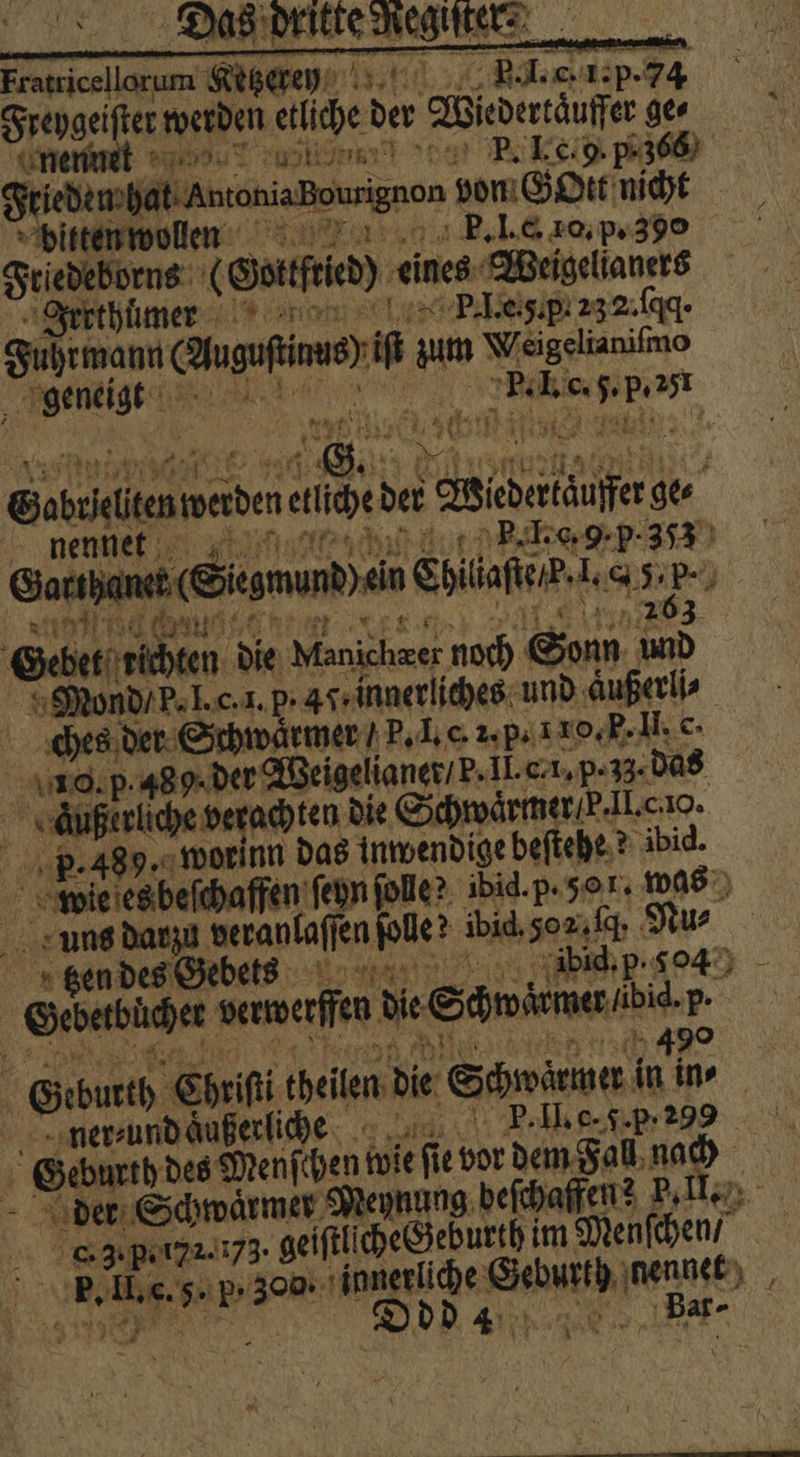 Das dritte Regiſter.
Fratricellorum Ketzerey P. I. c. 1. p. 74
Freygeiſter werden etliche der Wiedertäuffer ge⸗
nennet P. I. c. 9. p. 366
Frieden hat Antonia Bourignon von GOtt nicht
bitten wollen P. I. c. 10. p. 390
Friedeborns (Gottfried) eines Weigelianers
Irrthümer P. I. c. 5. p. 232. ſqq.
Fuhrmann (Auguſtinus) iſt zum Weigelianiſmo
geneigt P. I. c. 5. p. 251
G.
Gabrieliten werden etliche der Wiedertäuffer ge⸗
nennet P. I. c. 9. p. 353
Garthaner (Siegmund) ein Chiliaſte/ P. I. c. 5. p.
263
Gebet richten die Manichæer noch Sonn und
Mond/ P. I. c. 1. p. 45. innerliches und äußerli⸗
ches der Schwärmer / P. I. c. 2. p. 110. P. II. c.
10. p. 489. der Weigelianer/ P. II. c. 1. p. 33. das
äußerliche verachten die Schwärmer/ P. II. c. 10.
p. 489. worinn das inwendige beſtehe? ibid.
wie es beſchaffen ſeyn ſolle? ibid. p. 501. was
uns darzu veranlaſſen ſolle? ibid. 502. ſq. Nu⸗
tzen des Gebets ibid. p. 504
Gebetbücher verwerffen die Schwärmer/ ibid. p.
490
Geburth Chriſti theilen die Schwärmer in in⸗
ner⸗ und äußerliche P. II. c. 5. p. 299
Geburth des Menſchen wie ſie vor dem Fall nach
der Schwärmer Meynung beſchaffen? P. II.
c. 3. p. 172. 173. geiſtliche Geburth im Menſchen/
P. II. c. 5. p. 300. innerliche Geburth nennet
Ddd 4 Bar-